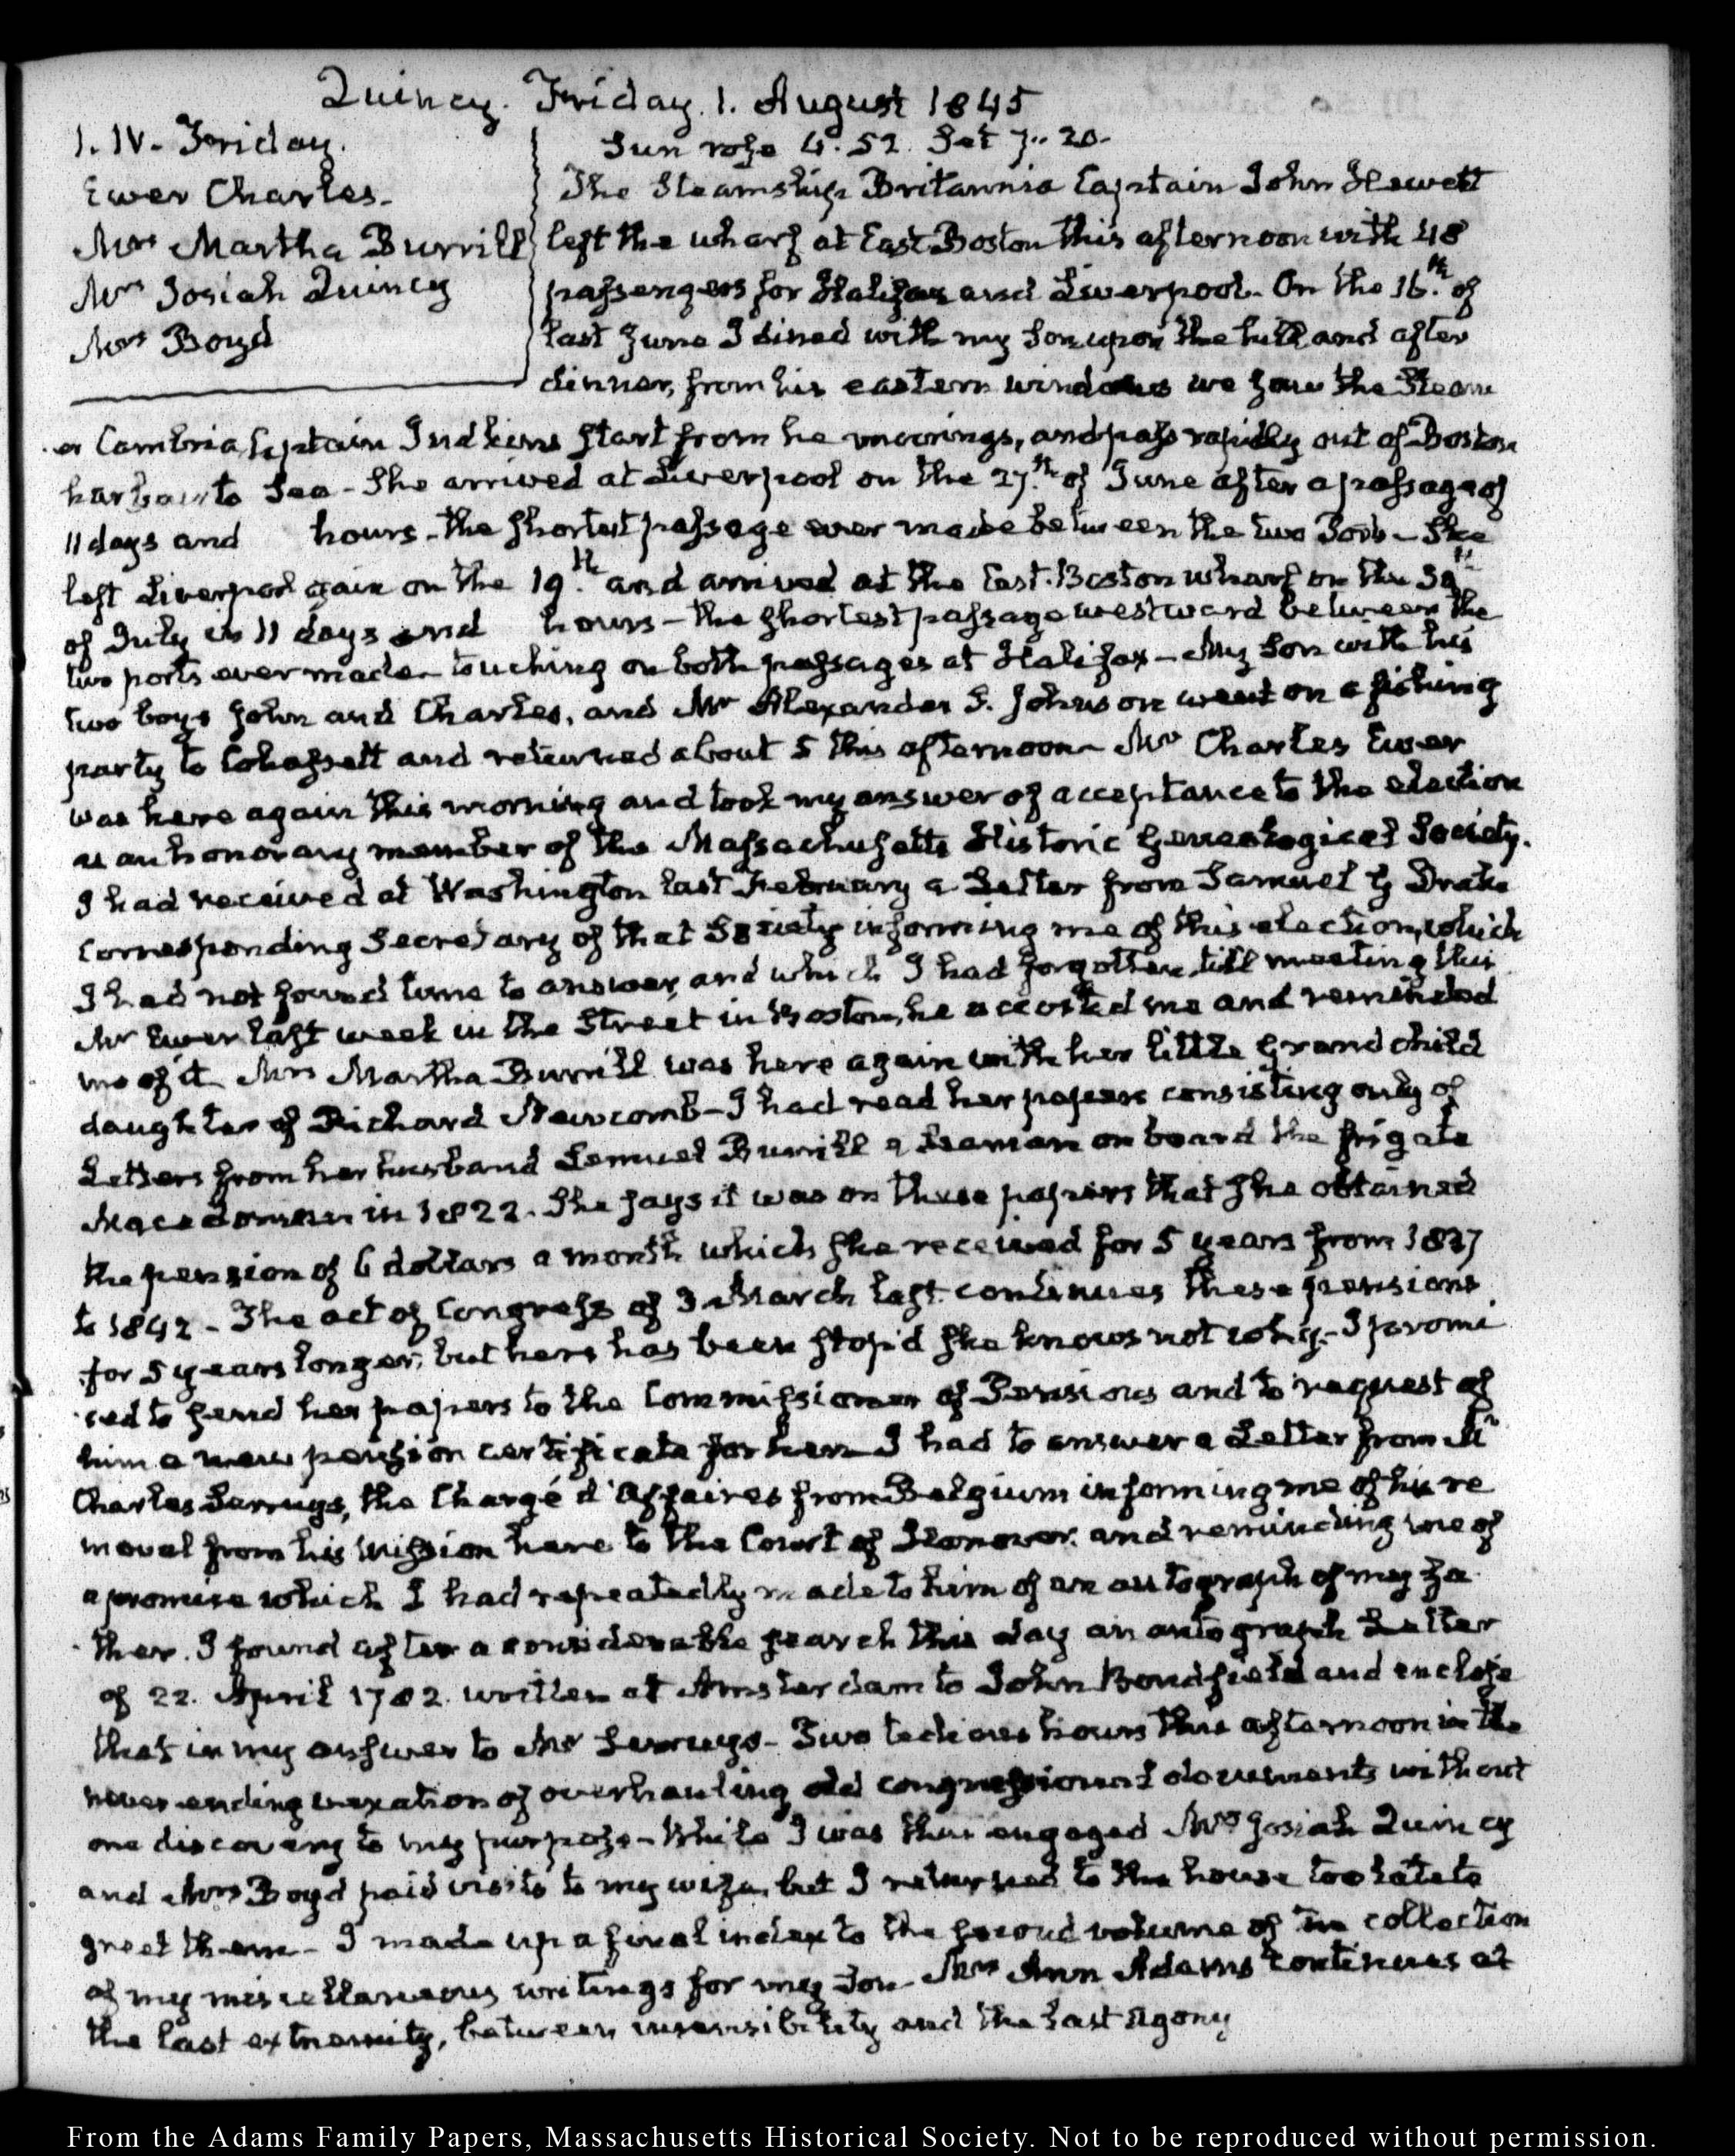 Quincy. Friday. 1. August 1845
1. IV. Friday.
Ewer Charles.
Mrs Martha Burrill
Mrs Josiah Quincy
Mrs Boyd
Sun rose 4. 52. Set 7.. 20.
The Steamship Britannia Captain John Hewett
left the wharf at East Boston this afternoon with 48
passengers for Halifax and Liverpool. On the 16.th of
last June I dined with my Son upon the hill, and after
dinner, from his eastern windows we saw the Steam
er Cambria, Captain Judkins start from he moorings, and pass rapidly out of Boston
harbour to Sea - She arrived at Liverpool on the 27.th of June after a passage of
11 days and hours - the shortest passage ever made between the two - She
left Liverpool gain on the 19.th and arrived at the East-Boston wharf on the 30th
of July in 11 days and hours - the shortest passage westward between the
two ports ever made - touching on both passages at Halifax - My Son with his
two boys John and Charles, and Mr Alexander S. Johnson went on a fishing
party to Cohassett and returned about 5 this afternoon - Mr Charles Ewer
was here again this morning and took my answer of acceptance to the election
as an honorary member of the Massachusetts Historic Genealogical Society.
I had received at Washington last February a Letter from Samuel G Drake
Corresponding Secretary of that Society informing me of this election, which
I had not found time to answer, and which I had forgotten, till meeting this
Mr Ewer last week in the Street in Boston, he accosted me and reminded
me of it. Mrs Martha Burrill was here again with her little Grand child
daughter of Richard Newcomb - I had read her papers consisting only of
Letters from her husband Lemuel Burrill a Seaman on board the frigate
Macedonian in 1822. She says it was on these papers that she obtained
the pension of 6 dollars a month which she received for 5 years from 1837
to 1842 - The act of Congress of 3 March last continues these pensions
for 5 years longer; but hers has been stop'd she knows not why. - I promi
sed to send her papers to the Commissioner of Pensions and to request of
him a new pension certificate for her - I had to answer a Letter from Mr
Charles Serruys, the Chargé d'Affaires from Belgium informing me of his re
moval from his Mission here to the Court of Hanover, and reminding me of
a promise which I had repeatedly made to him of an autograph of my fa
ther. I found after a considerable search this day an autograph Letter
of 22. April 1782. written at Amsterdam to John Bondfield and enclose
that in my answer to Mr Serruys - Two tedious hours this afternoon in the
never ending vexation of overhauling old congressional documents without
one discovery to my purpose - While I was thus engaged Mrs Josiah Quincy
and Mrs Boyd paid visits to my wife, but I returned to the house too late to
greet them - I made up a final index to the second volume of the collection
of my miscellaneous writings for my Son - Mrs Ann Adams continues at
the last extremity, between insensibility and the last Agony
From the Adams Family Papers, Massachusetts Historical Society. Not to be reproduced without permission.